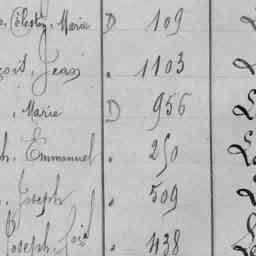 Célestin, Marie D 109
Jean . 1103
, Marie D 956
h, Emmanuel . 250
, Joseph . 509
Joseph . 438